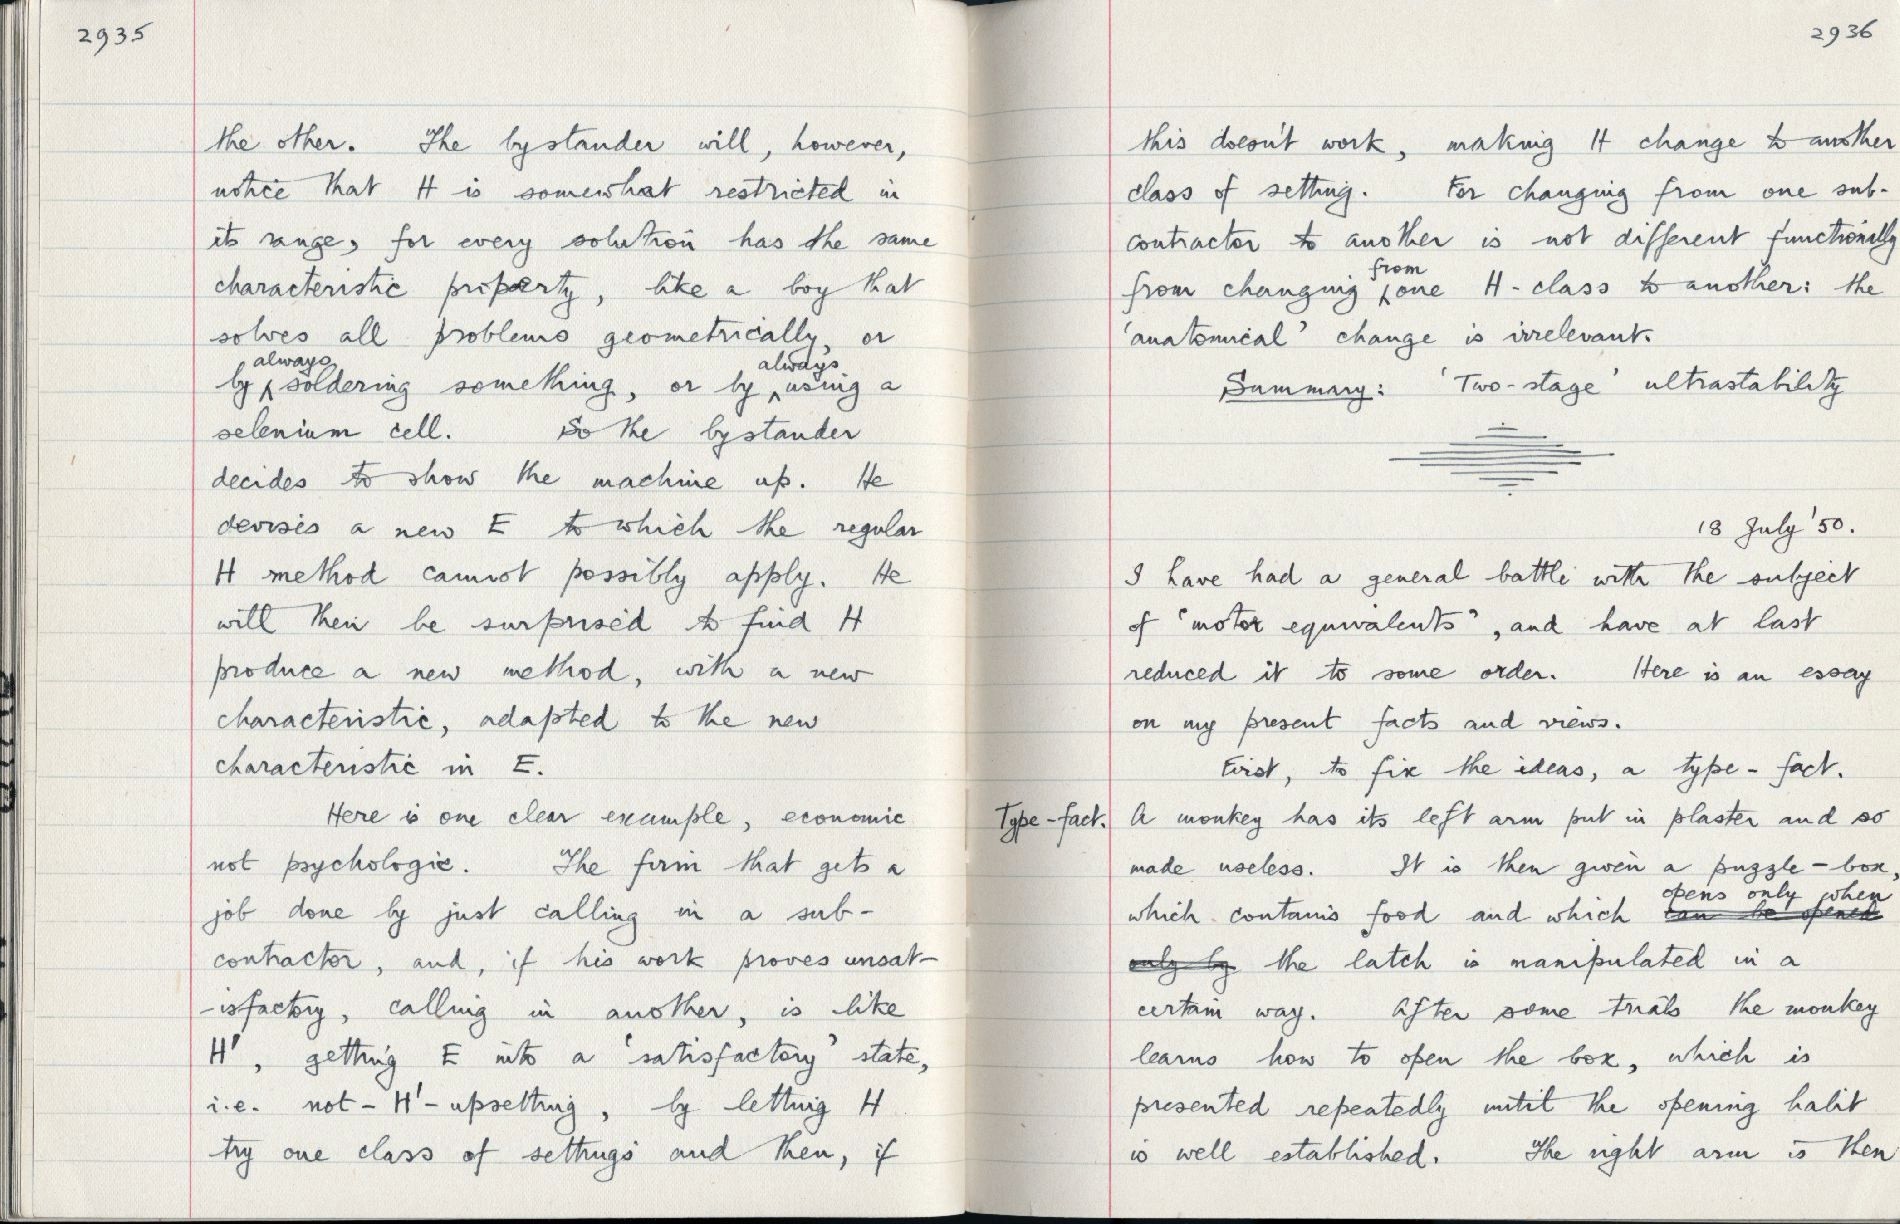 2935
the other. The bystander will, however,
notice that H is somewhat restricted in
its range, for every solution has the same
characteristic property, like a boy that
solves all problems geometrically, or
by always soldering something, or by always using a
selenium cell. So the bystander
decides to show the machine up. He
devises a new E to which the regular
H method cannot possibly apply. He
will then be surprised to find H
produce a new method, with a new
characteristic, adapted to the new
characteristic in E.
Here is one clear example, economic
not psychologic. The firm that gets a
job done by just calling in a sub-
contractor, and, if his work proves unsat-
-isfactory, calling in another, is like
H', getting E into a 'satisfactory' state,
i.e. not-H'-upsetting, by letting H
try one class of settings and then, if
2936
this doesn't work, making H change to another
class of setting. For changing from one sub-
contractor to another is not different functionally
from changing from one H-class to another: the
'anatomical' change is irrelevant.
Summary: 'Two-stage' ultrastability
18 July '50.
I have had a general battle with the subject
of "motor equivalents", and have at last
reduced it to some order. Here is an essay
on my present facts and views.
First, to fix the ideas, a type-fact.
Type-fact. A monkey has its left arm put in plaster and so
made useless. It is then given a puzzle-box,
which contains food and which can be opened opens only when
only by the latch is manipulated in a
certain way. After some trials the monkey
learns how to open the box, which is
presented repeatedly until the opening habit
is well established. The right arm is then